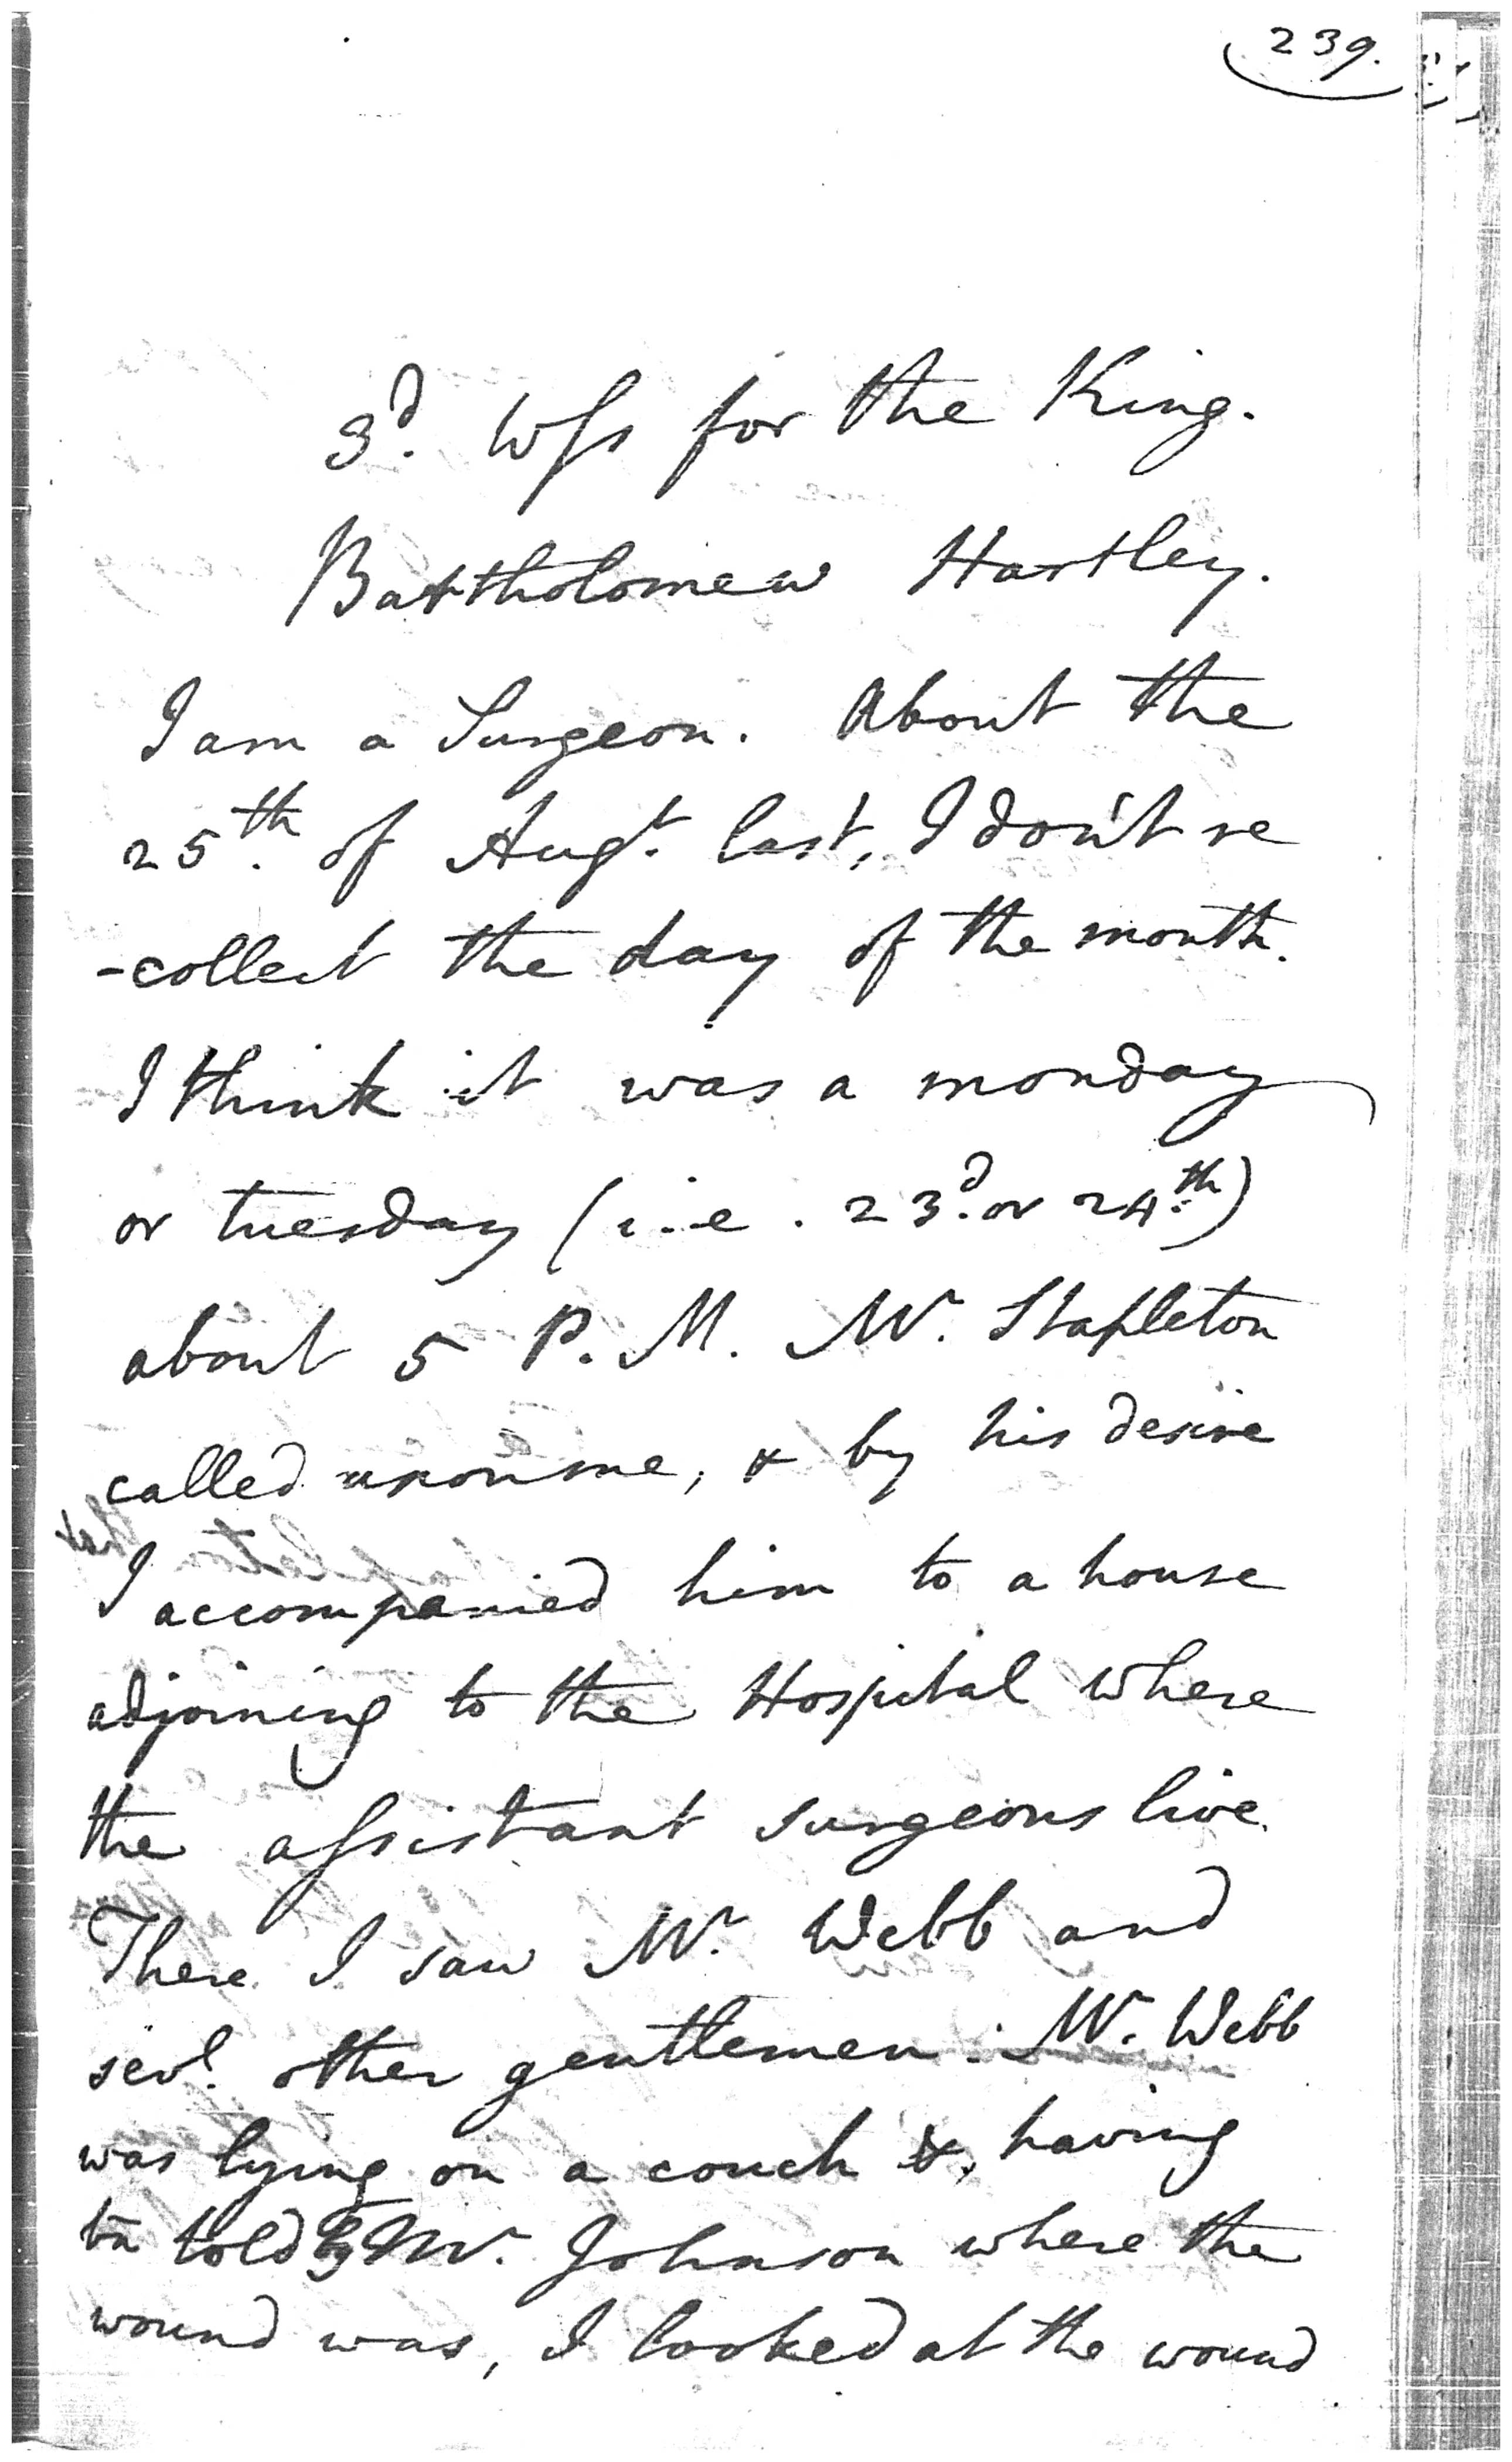 239.
3d. Wss for the King.
Bartholomew Hartley.
I am a Surgeon. About the
25th. of Augt. last, I don't re
-collect the day of the month.
I think it was a monday
or tuesday (i.e. 23d. or 24th.)
about 5 P.M. Mr. Stapleton
called upon me, & by his desire
I accompanied him to a house
adjoining to the Hospital where
the assistant surgeons live.
There I saw Mr. Webb and
sevl. other gentlemen. Mr. Webb
was lying on a couch &, having
bn told by Mr. Johnson where the
wound was, I looked at the wound